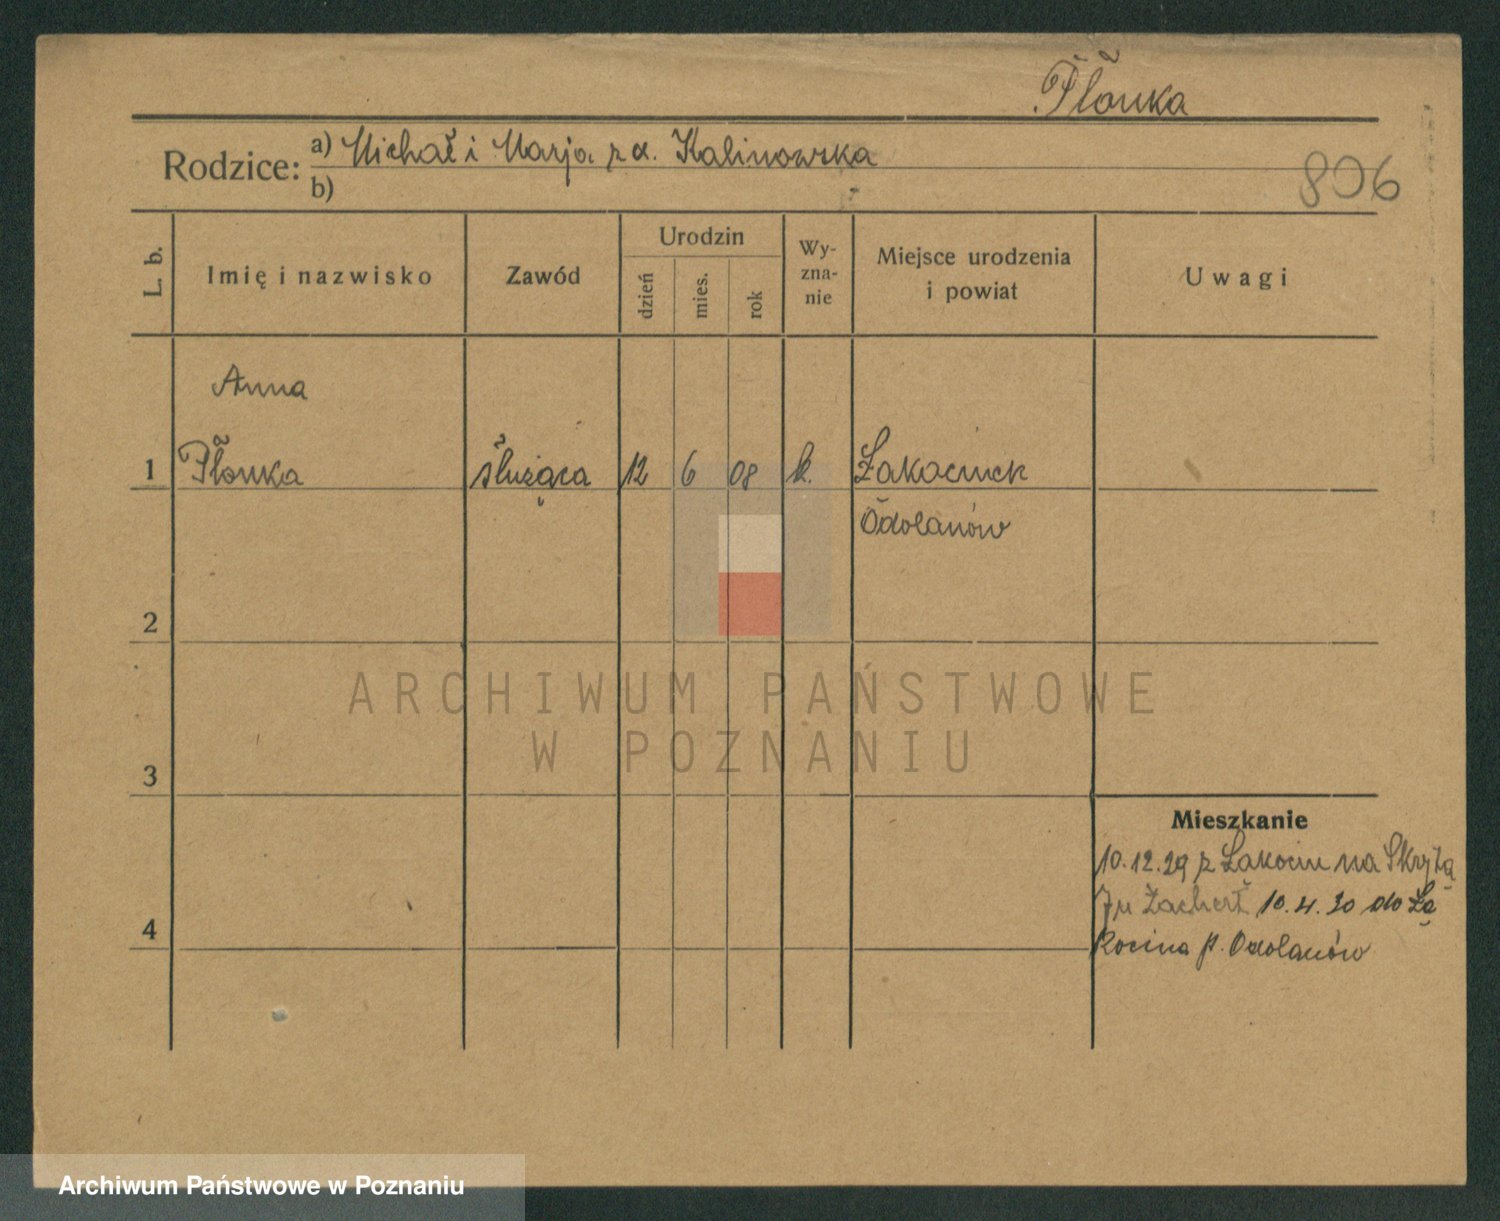 Płonka
Rodzice: a) Michał i Marja z d. Kalinowska
b)
806
L. b.
Imię i nazwisko
Zawód
Urodzin
dzień
mies.
rok
Wy-
zna-
nie
Miejsce urodzenia
i powiat
Uwagi
Anna
1 Płonka służąca 12 6 08 k.
Odolanów
2
3
4
Mieszkanie
10.12.29 z na
10.4.30 do Łą
kocina p. Odolanów
ARCHIWUM PAŃSTWOWE
W POZNANIU
Archiwum Państwowe w Poznaniu